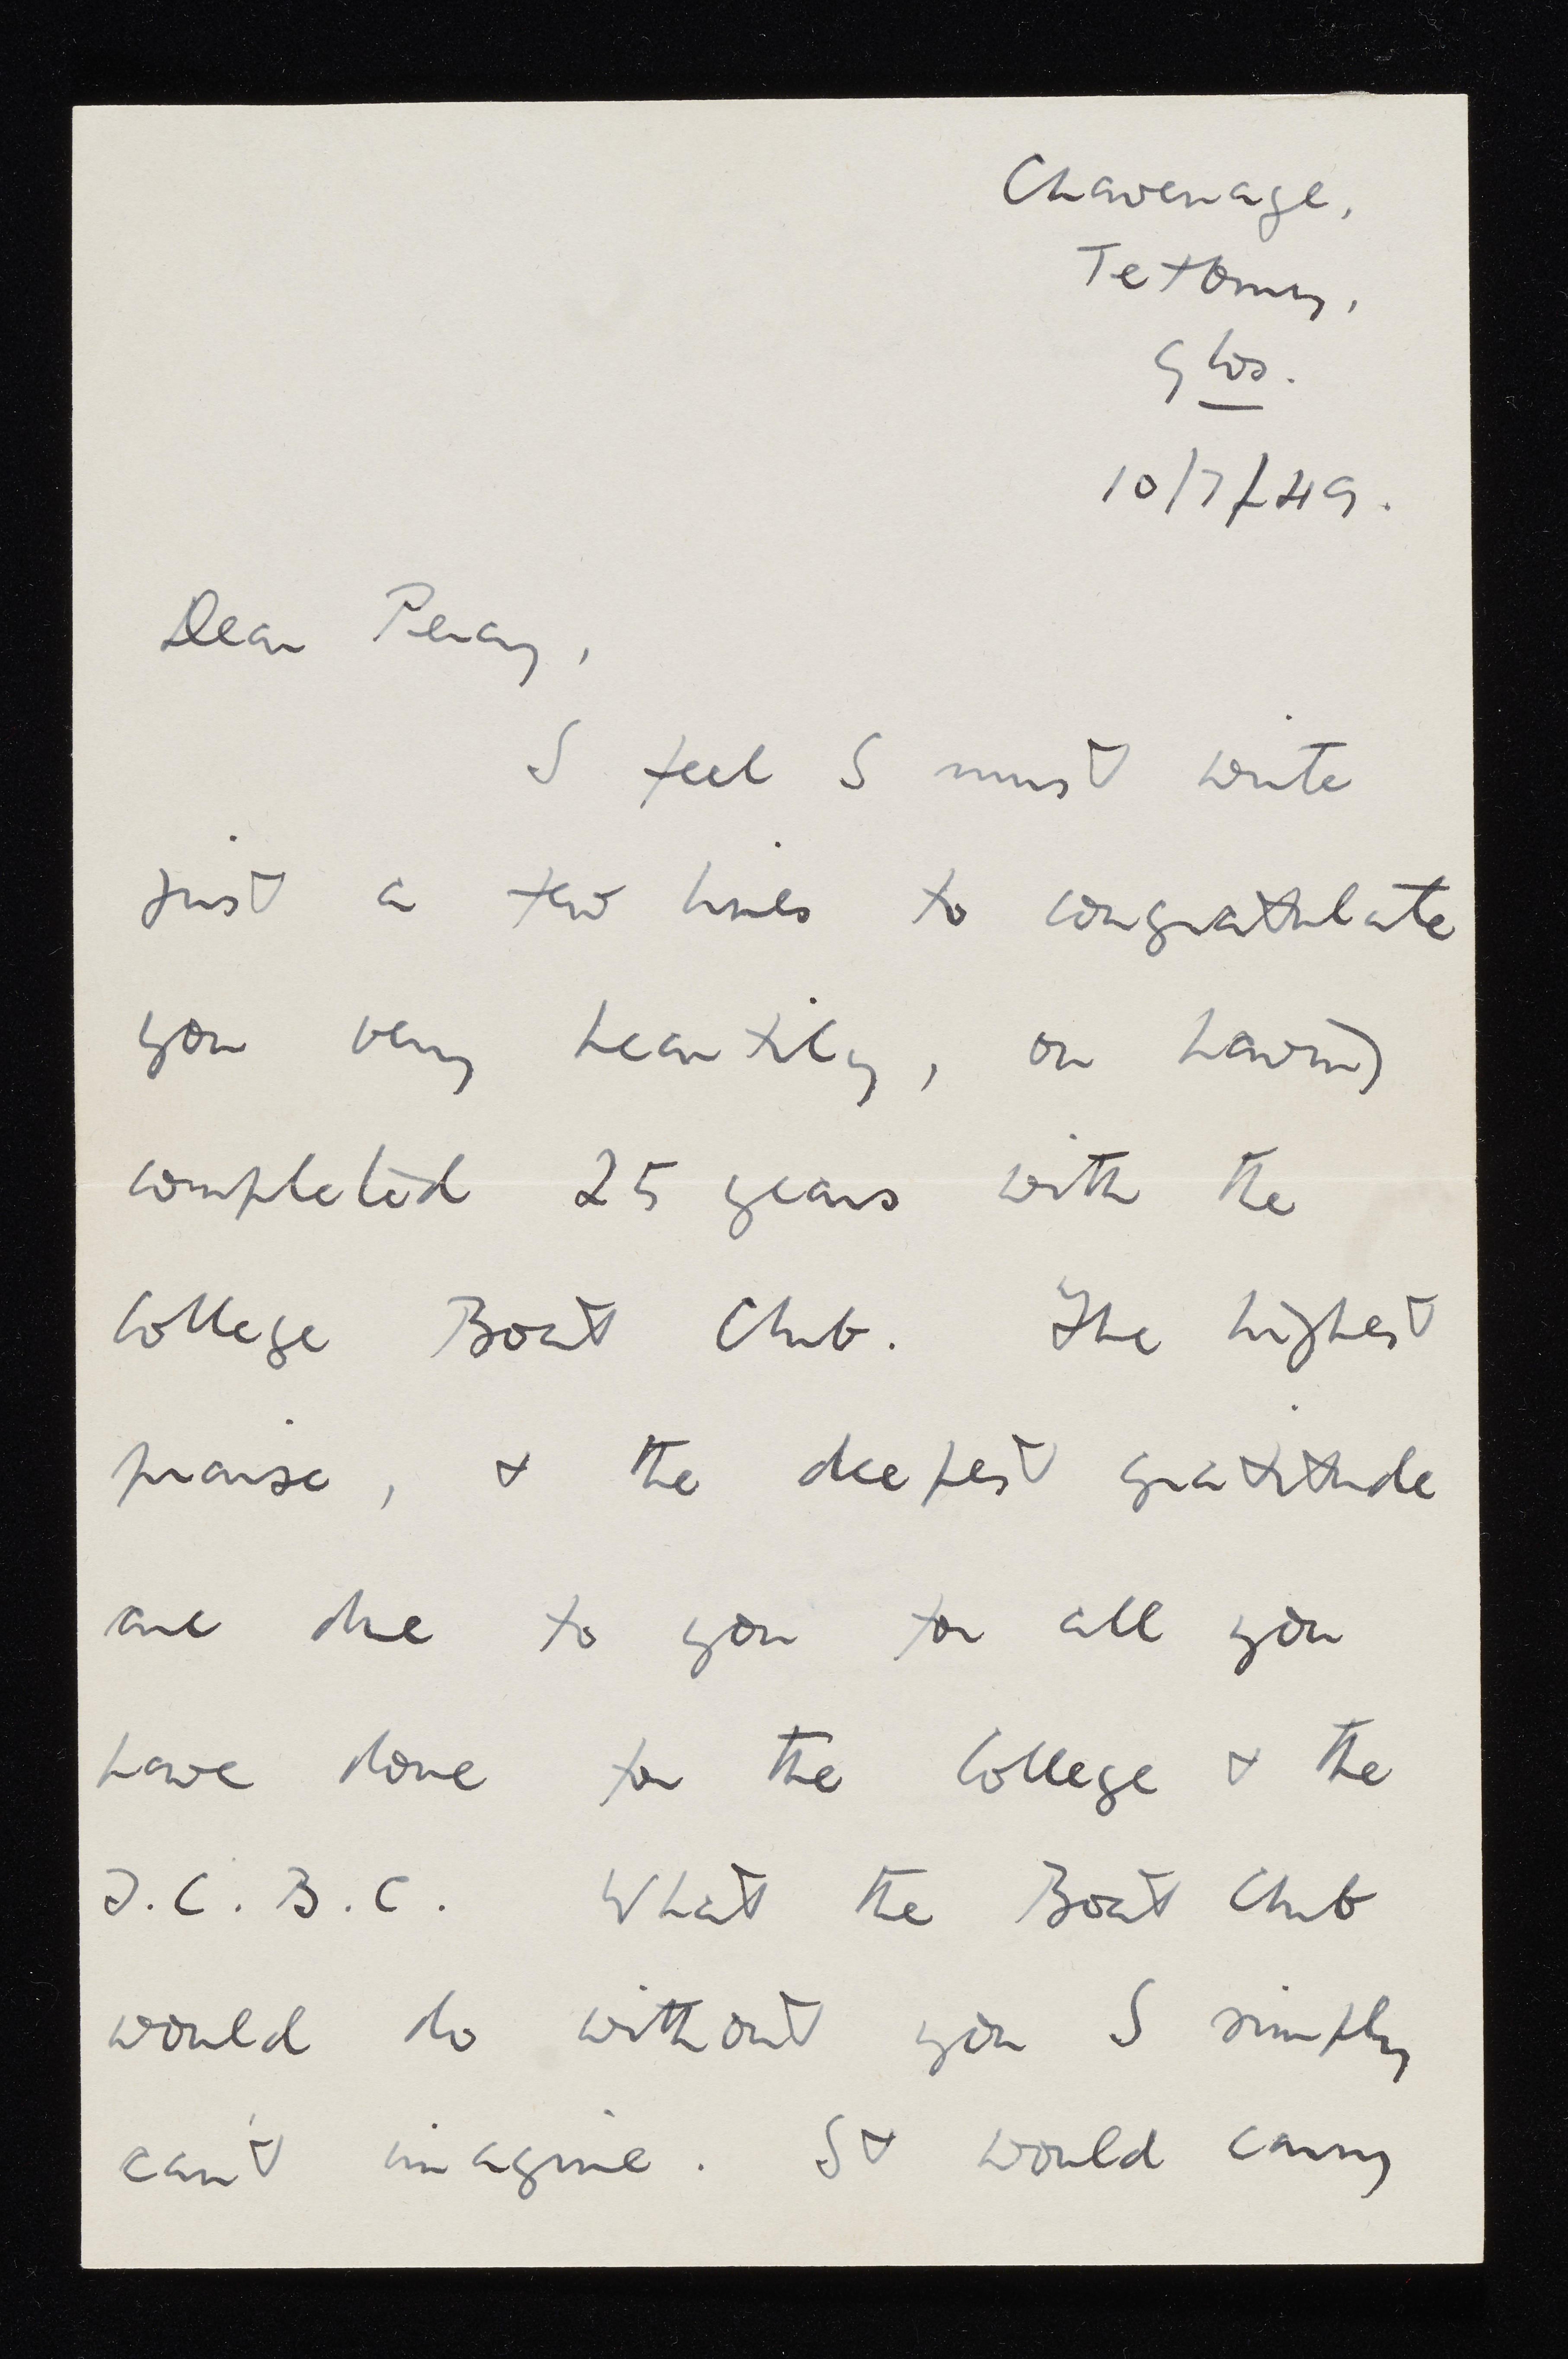 Chavenage,
Tetbury,
Glos.
10/7/49.
Dear Percy,
I feel I must write
just a few lines to congratulate
you very heartily, on having
completed 25 years with the
College Boat Club. The highest
praise, & the deepest gratitude
are due to you for all you
have done for the College & the
J.C.B.C. What the Boat Club
would do without you I simply
can't imagine. It would carry